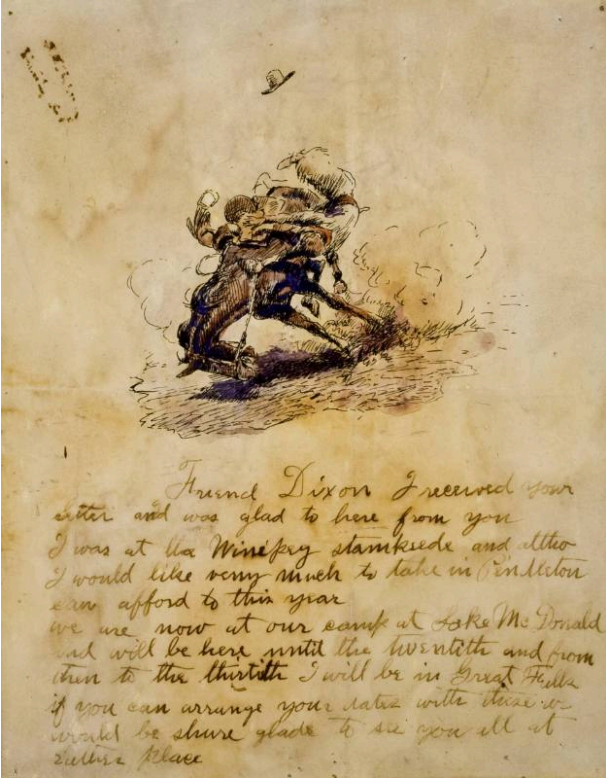 Friend Dixon I received your
letter and was glad to here from you
I was at the Winepeg stampede and altho
I would like verry much to take in Pendleton
cant afford to this year
we are now at our camp at Lake McDonald
and will be here until the twentith and from
then to the thirtith I will be in Great Falls
if you can arrange your dates with these we
would be shure glade to see you all at
either place